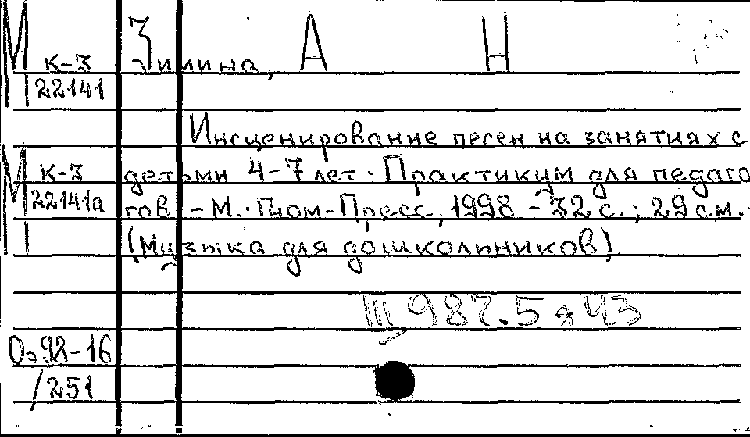 М К-3 Зилина, А Н
22141
Инсценирование песен на занятиях с
М К-3 детьми 4-7 лет. Практикум для педаго
22141а гов. - М. Гном-Пресс, 1998 - 32 с.; 29 см.
(Музыка для дошколиников)
Щ 987.5 я 43
Оэ98-16
/251